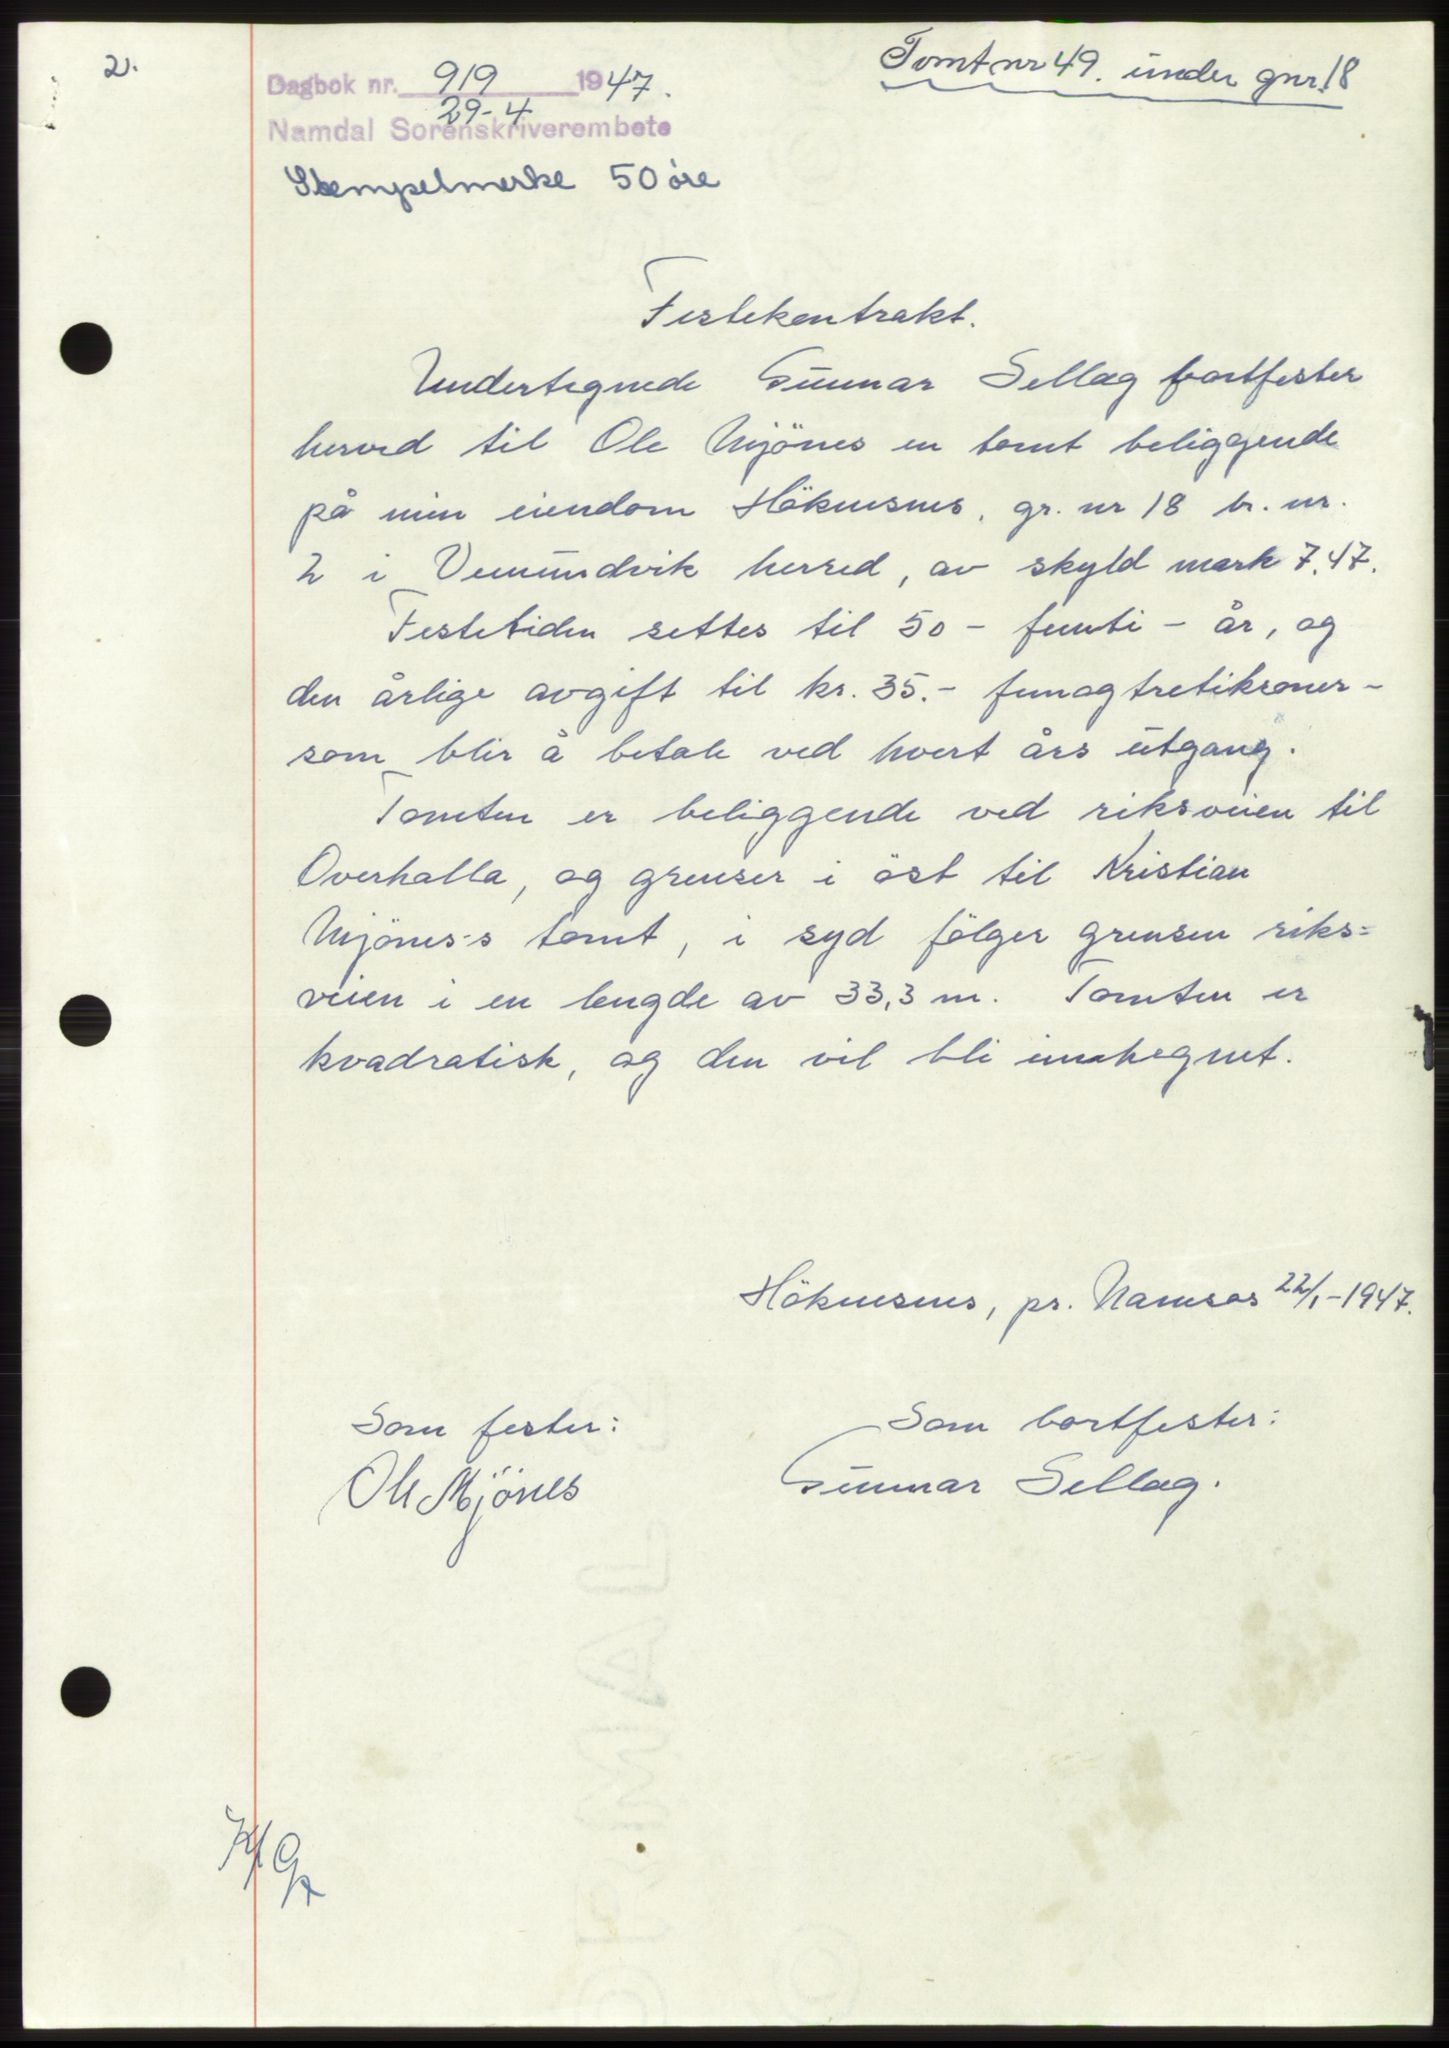 2.
Tomt nr 49. under gnr. 18
Dagbok nr. 919 1947.
29-4
Namdal Sorenskriverembete
Stempelmerke 50 øre
Festekontrakt.
Undertegnede Gunnar Sellæg bortfester
herved til Ole Mjönes en tomt beliggende
på min eiendom Höknesnes, gr. nr 18 br. nr.
2 i Vemundvik herred, av skyld mark 7.47.
Festetiden settes til 50 - femti - år, og
den årlige avgift til kr. 35.- femogtretikroner -
som blir å betale ved hvert års utgang.
Tomten er beliggende ved riksveien til
Overhalla, og grenser i öst til Kristian
Mjönes's tomt, i syd fölger grensen riks=
veien i en lengde av 33,3 m. Tomten er
kvadratisk, og den vil bli innhegnet.
Höknesnes, pr. Namsos 22/1-1947.
Som fester: Som bortfester:
Ole Mjönes Gunnar Sellæg.